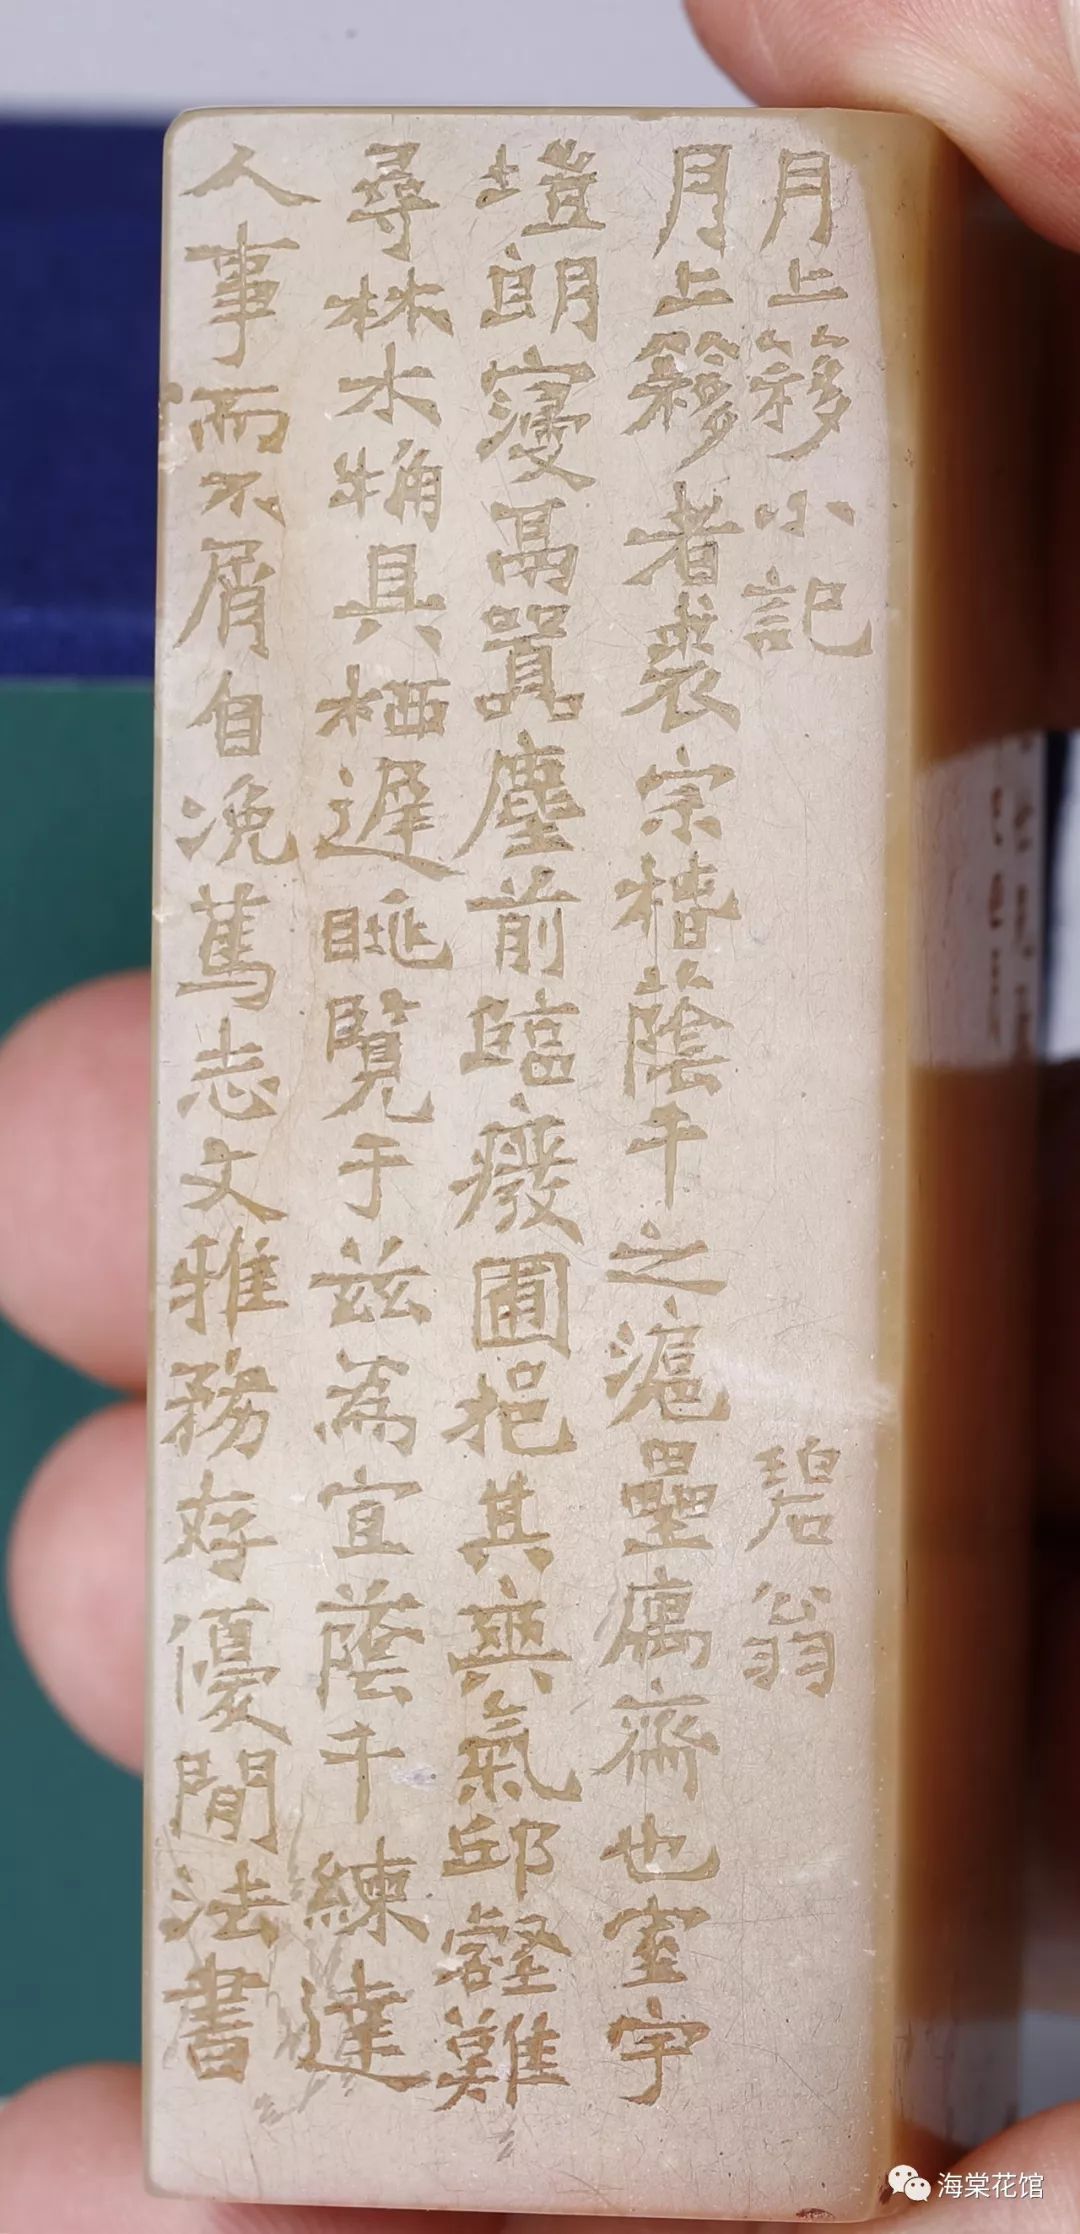 月上簃小記 碧翁
月上簃者裘宗稽蔭千之滬壘庽齋也室宇
塏朗寖鬲嚣塵前臨廢圃挹其爽氣邱壑難
尋林水觕具栖遲眺覽于兹為宜蔭千練達
人事而不屑自浼篤志文雅務存優閒法書
海棠花馆